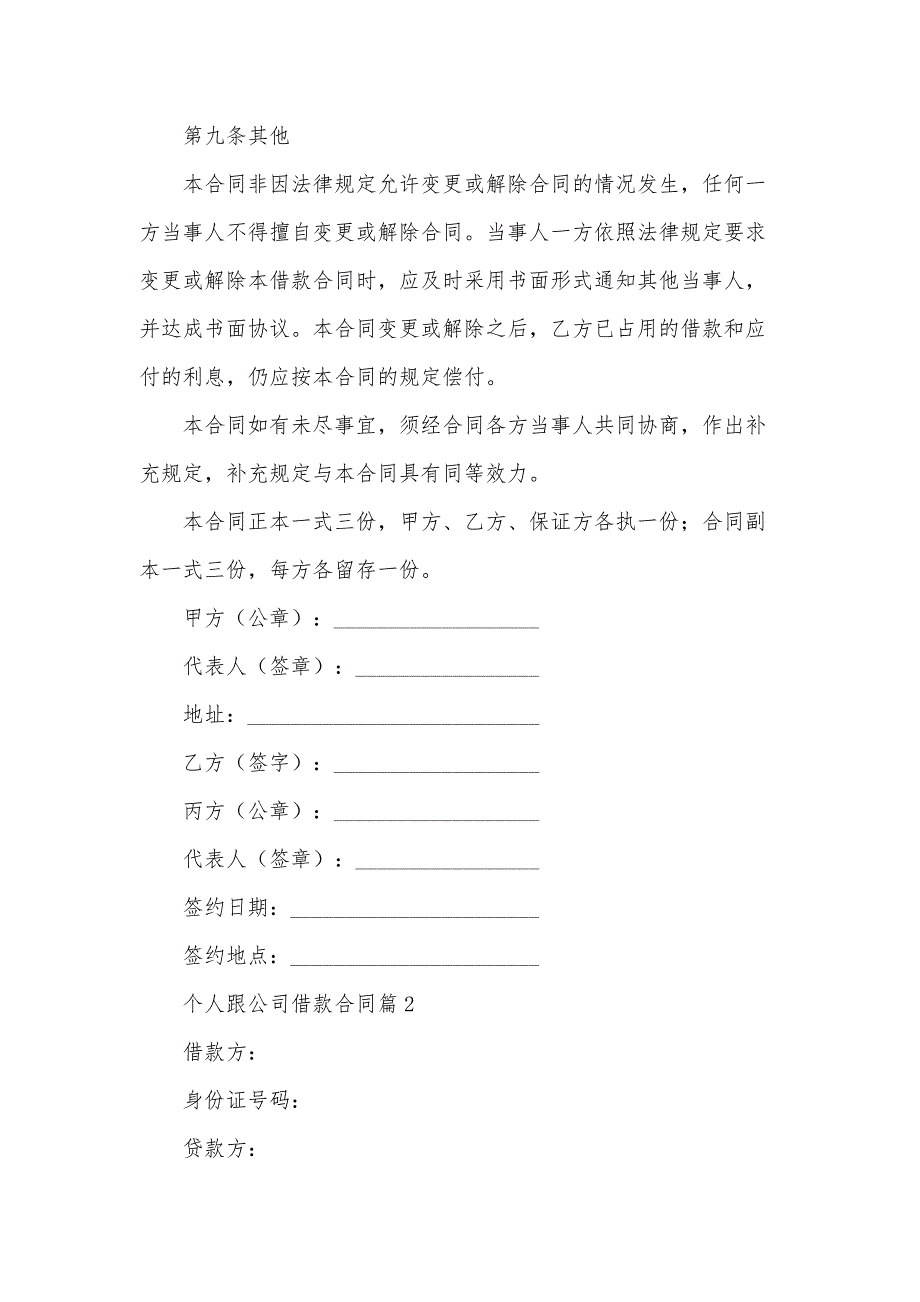 第九条其他
本合同非因法律规定允许变更或解除合同的情况发生，任何一
方当事人不得擅自变更或解除合同。当事人一方依照法律规定要求
变更或解除本借款合同时，应及时采用书面形式通知其他当事人，
并达成书面协议。本合同变更或解除之后，乙方已占用的借款和应
付的利息，仍应按本合同的规定偿付。
本合同如有未尽事宜，须经合同各方当事人共同协商，作出补
充规定，补充规定与本合同具有同等效力。
本合同正本一式三份，甲方、乙方、保证方各执一份；合同副
本一式三份，每方各留存一份。
甲方（公章）：___________________
代表人（签章）：_________________
地址：___________________________
乙方（签字）：___________________
丙方（公章）：___________________
代表人（签章）：_________________
签约日期：_______________________
签约地点：_______________________
个人跟公司借款合同篇2
借款方：
身份证号码：
贷款方：